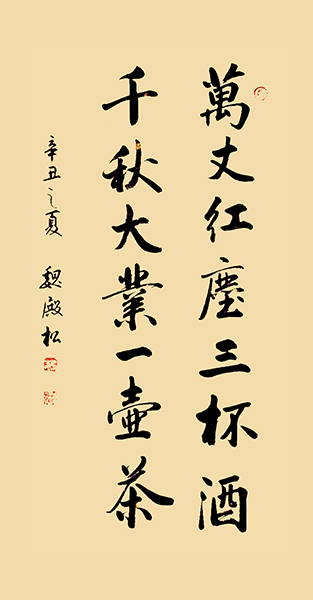 萬丈红塵三杯酒
千秋大業一壺茶
辛丑之夏 魏殿松